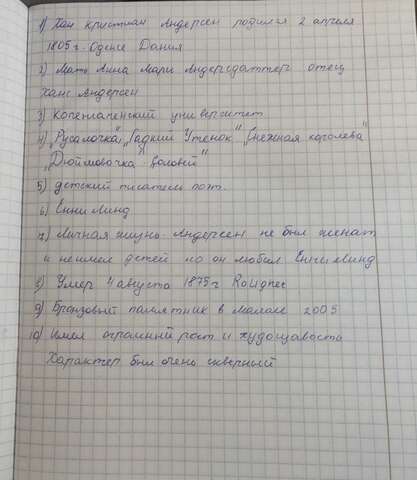 1) Хан кристиан Андерсен родился 2 апреля
1805 г. Оденс Дания
2) Мать Анна Мари Андерсдаттер отец
Ханс Андерсен
3) Копенгагенский университет
4) „Русалочка" „Гадкий Утенок" „Снежная королева"
„Дюймовочка" „Соловей"
5) детский писатель поэт.
6) Енни Линд
7) Личная жизнь. Андерсен не был женат
и не имел детей но он любил Енни Линд
8) Умер 4 августа 1875 г
9) Бронзовый памятник в Малаге 2005
10) Имел огромный рост и худощавость
Характер был очень скверный